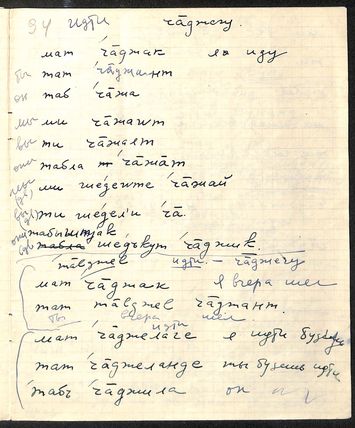 34 идти ча̄джегу.
мат ча̄джак я иду
ты тат ча̄джант
он таб ча̄жа
мы ми ча̄жаит
вы ти ча̄жалт
они табла ча̄жа̄т
ми ше̄деште ча̄жай
ти ше̄дели ча̄.
табыштjак
табла ше̄дъкут ча̄джик.
та̄вджев идти – ча̄джегу
мат ча̄джак я вчера шел
тат та̄вджев ча̄джант.
ты вчера шел
идти
мат ча̄джела̄ге я идти буду
тат ча̄джеланде ты будешь идти
табъ ча̄джила он